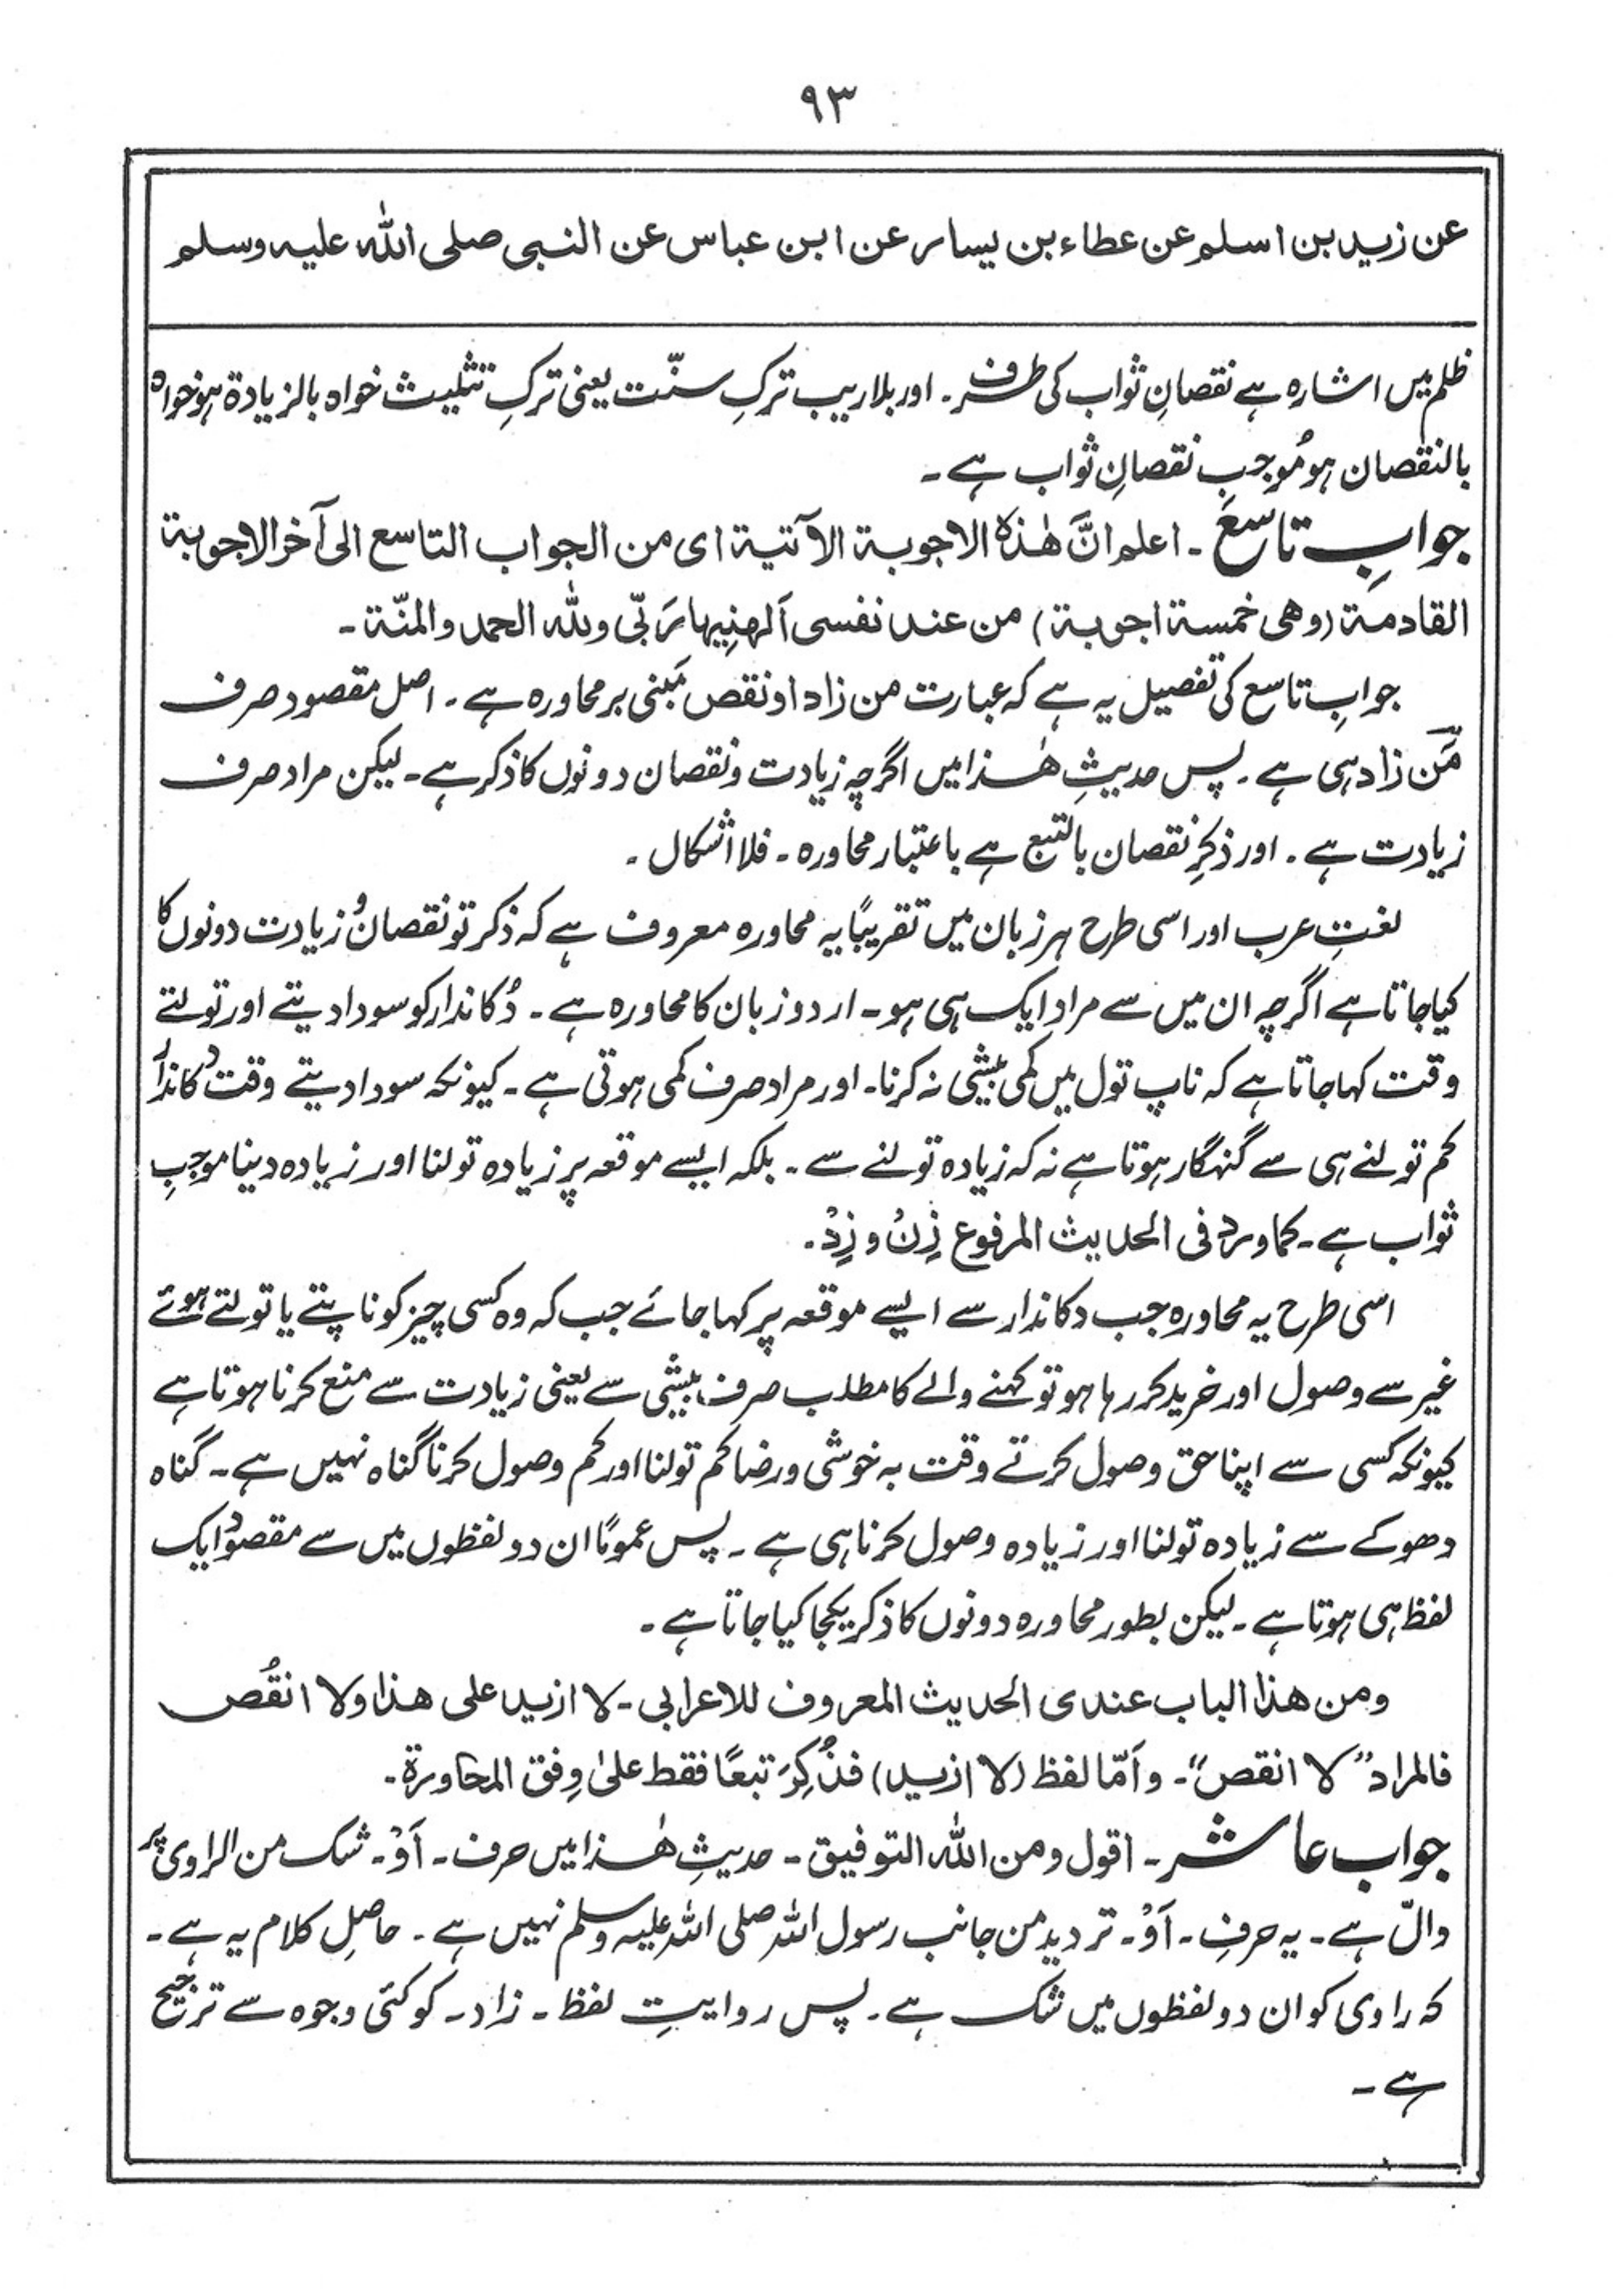 ۹۳
عن زید بن اسلم عن عطاء بن یسار عن ابن عباس عن النبی صلی اللہ علیہ وسلم
ظلم میں اشارہ ہے نقصانِ ثواب کی طرف۔ اور بلا ریب ترکِ سنّت یعنی ترکِ تثلیث خواہ بالزیادۃ ہو خواہ
بالنقصان ہو مُوجِبِ نقصانِ ثواب ہے۔
جوابِ تاسع۔ اعلم انَّ ھٰذہ الاجوبۃ الآتیۃ ای من الجواب التاسع الی آخر الاجوبۃ
القادمۃ (وھی خمسۃ اجوبۃ) من عند نفسی اَلہمنِیہا رَبّی وللہ الحمد والمنّۃ۔
جوابِ تاسع کی تفصیل یہ ہے کہ عبارت من زاد او نقص مَبنی بر محاورہ ہے۔ اصل مقصود صرف
مَن زاد ہی ہے۔ پس حدیثِ ھٰذا میں اگرچہ زیادت و نقصان دونوں کا ذکر ہے۔ لیکن مراد صرف
زیادت ہے۔ اور ذکرِ نقصان بالتبع ہے باعتبار محاورہ۔ فلا اشکال۔
لغتِ عرب اور اسی طرح ہر زبان میں تقریبًا یہ محاورہ معروف ہے کہ ذکر تو نقصان وُ زیادت دونوں کا
کیا جاتا ہے اگرچہ ان میں سے مراد ایک ہی ہو۔ اردو زبان کا محاورہ ہے۔ دُکاندار کو سودا دیتے اور تولتے
وقت کہا جاتا ہے کہ ناپ تول میں کمی بیشی نہ کرنا۔ اور مراد صرف کمی ہوتی ہے۔ کیونکہ سودا دیتے وقت دُکاندار
کم تولنے ہی سے گنہگار ہوتا ہے نہ کہ زیادہ تولنے سے۔ بلکہ ایسے موقعہ پر زیادہ تولنا اور زیادہ دینا موجبِ
ثواب ہے۔ کما ورد فی الحدیث المرفوع زِنْ و زِدْ۔
اسی طرح یہ محاورہ جب دکاندار سے ایسے موقعہ پر کہا جائے جب کہ وہ کسی چیز کو ناپتے یا تولتے ہوئے
غیر سے وصول اور خرید کر رہا ہو تو کہنے والے کا مطلب صرف بیشی سے یعنی زیادت سے منع کرنا ہوتا ہے
کیونکہ کسی سے اپنا حق وصول کرتے وقت بہ خوشی و رضا کم تولنا اور کم وصول کرنا گناہ نہیں ہے۔ گناہ
دھوکے سے زیادہ تولنا اور زیادہ وصول کرنا ہی ہے۔ پس عمومًا ان دو لفظوں میں سے مقصود ایک
لفظ ہی ہوتا ہے۔ لیکن بطور محاورہ دونوں کا ذکر یکجا کیا جاتا ہے۔
ومن ھذا الباب عندی الحدیث المعروف للاعرابی۔ لا ازید علی ھذا ولا انقُص
فالمراد ”لا انقص“۔ و اَمّا لفظ (لا ازید) فذُکِرَ تبعًا فقط علیٰ وِفق المحاورۃ۔
جواب عاشر۔ اقول ومن اللہ التوفیق۔ حدیثِ ھٰذا میں حرف۔ اَوْ۔ شک من الراوی پر
دالّ ہے۔ یہ حرفِ۔ اَوْ۔ تردید من جانب رسول اللہ صلی اللہ علیہ وسلم نہیں ہے۔ حاصلِ کلام یہ ہے۔
کہ راوی کو ان دو لفظوں میں شک ہے۔ پس روایتِ لفظ۔ زاد۔ کو کئی وجوہ سے ترجیح
ہے۔